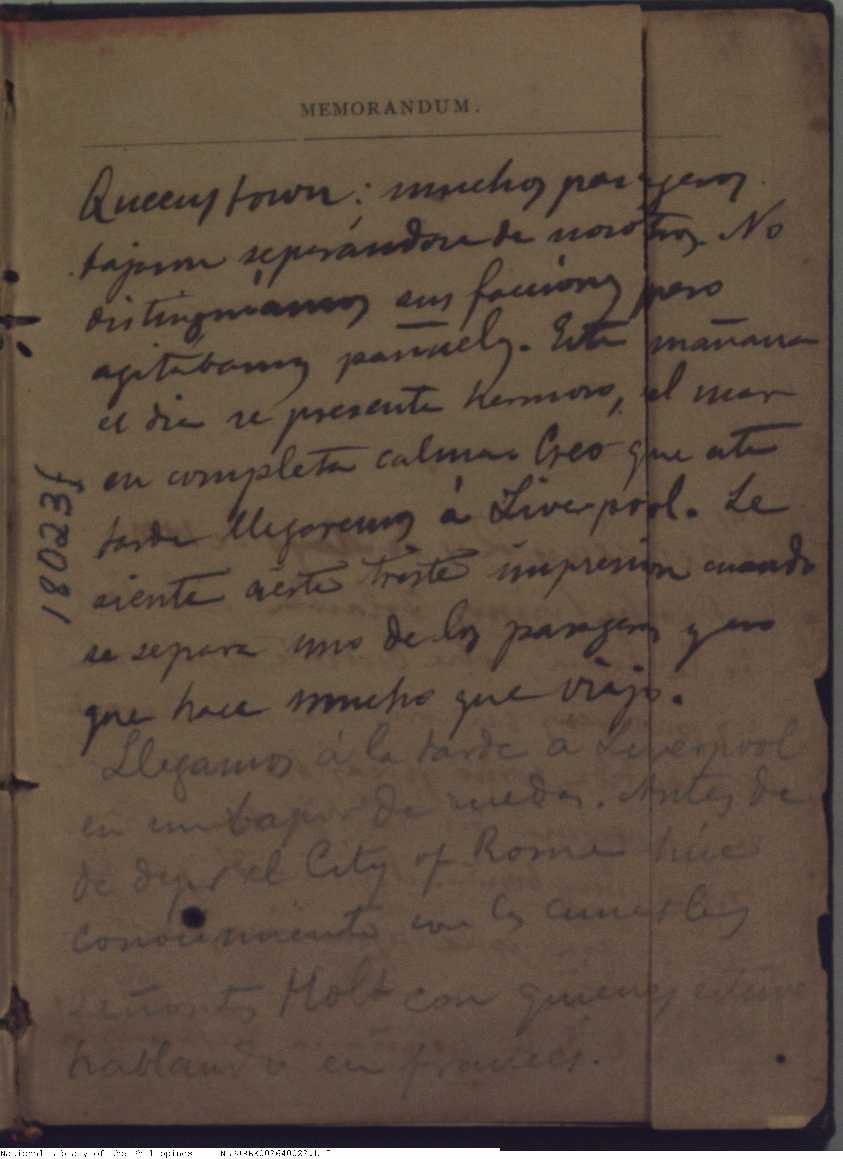 MEMORANDUM.
Queenstown: muchos pasageros
bajaron separándose de nosotros. No
distinguíamos sus facciones pero
agitábamos pañuelos. Esta mañana
el dia se presenta hermoso, el mar
en completa calma. Creo que esta
tarde llegaremos á Liverpool. Se
siente cierta triste impresion cuando
se separa uno de los pasageros y eso
que hace mucho que viajo.
Llegamos á la tarde a Liverpool
en un vapor de ruedas. Antes de
de dejar el City of Rome hice
conocimiento con las amables
señoritas Holt con quienes estuve
hablando en francés.
18023f
National Library of the Philippines